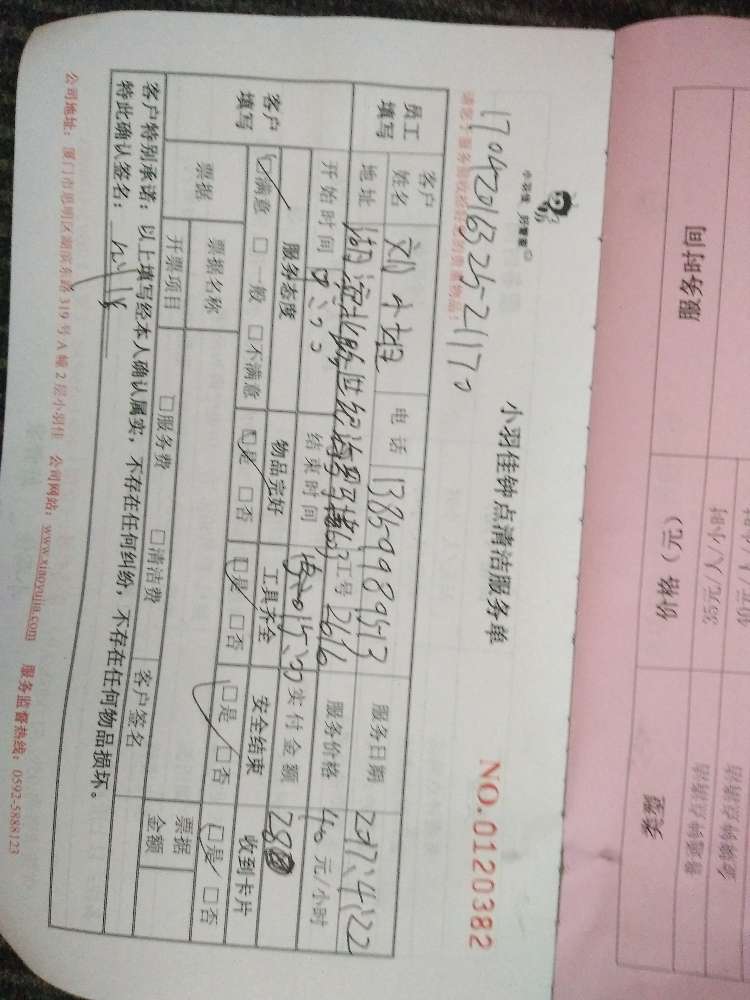 小羽佳钟点清洁服务单
小羽佳 好管家
NO.0120382
1704201632521170
员工填写
客户姓名 刘小姐 电话 13859989513 服务日期 2017.4.22
地址 湖滨北路世纪 工号 2616 服务价格 40 元/小时
开始时间 8:00 结束时间 实付金额 280
客户填写
服务态度 物品完好 工具齐全 安全结束 收到卡片
☑满意 □一般 □不满意 ☑是 □否 ☑是 □否 ☑是 □否 ☑是 □否
票据 票据名称 客户签名 票据金额
开票项目 □服务费 □清洁费
客户特别承诺:以上填写经本人确认属实,不存在任何纠纷,不存在任何物品损坏。
特此确认签名:
公司地址:厦门市思明区湖滨东路 319 号 A 幢 2 层小羽佳 公司网站:www.xiaoyujia.com 服务监督热线:0592-5888123
服务时间 价格(元) 类题
35元/人/小时 普通钟点清洁
金牌钟点清洁